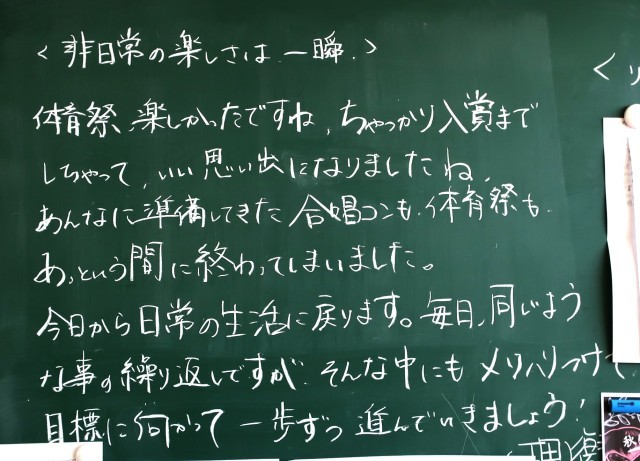 <非日常の楽しさは一瞬.>
体育祭、楽しかったですね、ちゃっかり入賞まで
しちゃって、いい思い出になりましたね、
あんなに準備してきた合唱コンも、体育祭も、
あっという間に終わってしまいました。
今日から日常の生活に戻ります。毎日、同じよう
な事の繰り返しですが、そんな中にもメリハリつけて、
目標に向かって一歩ずつ進んでいきましょう!